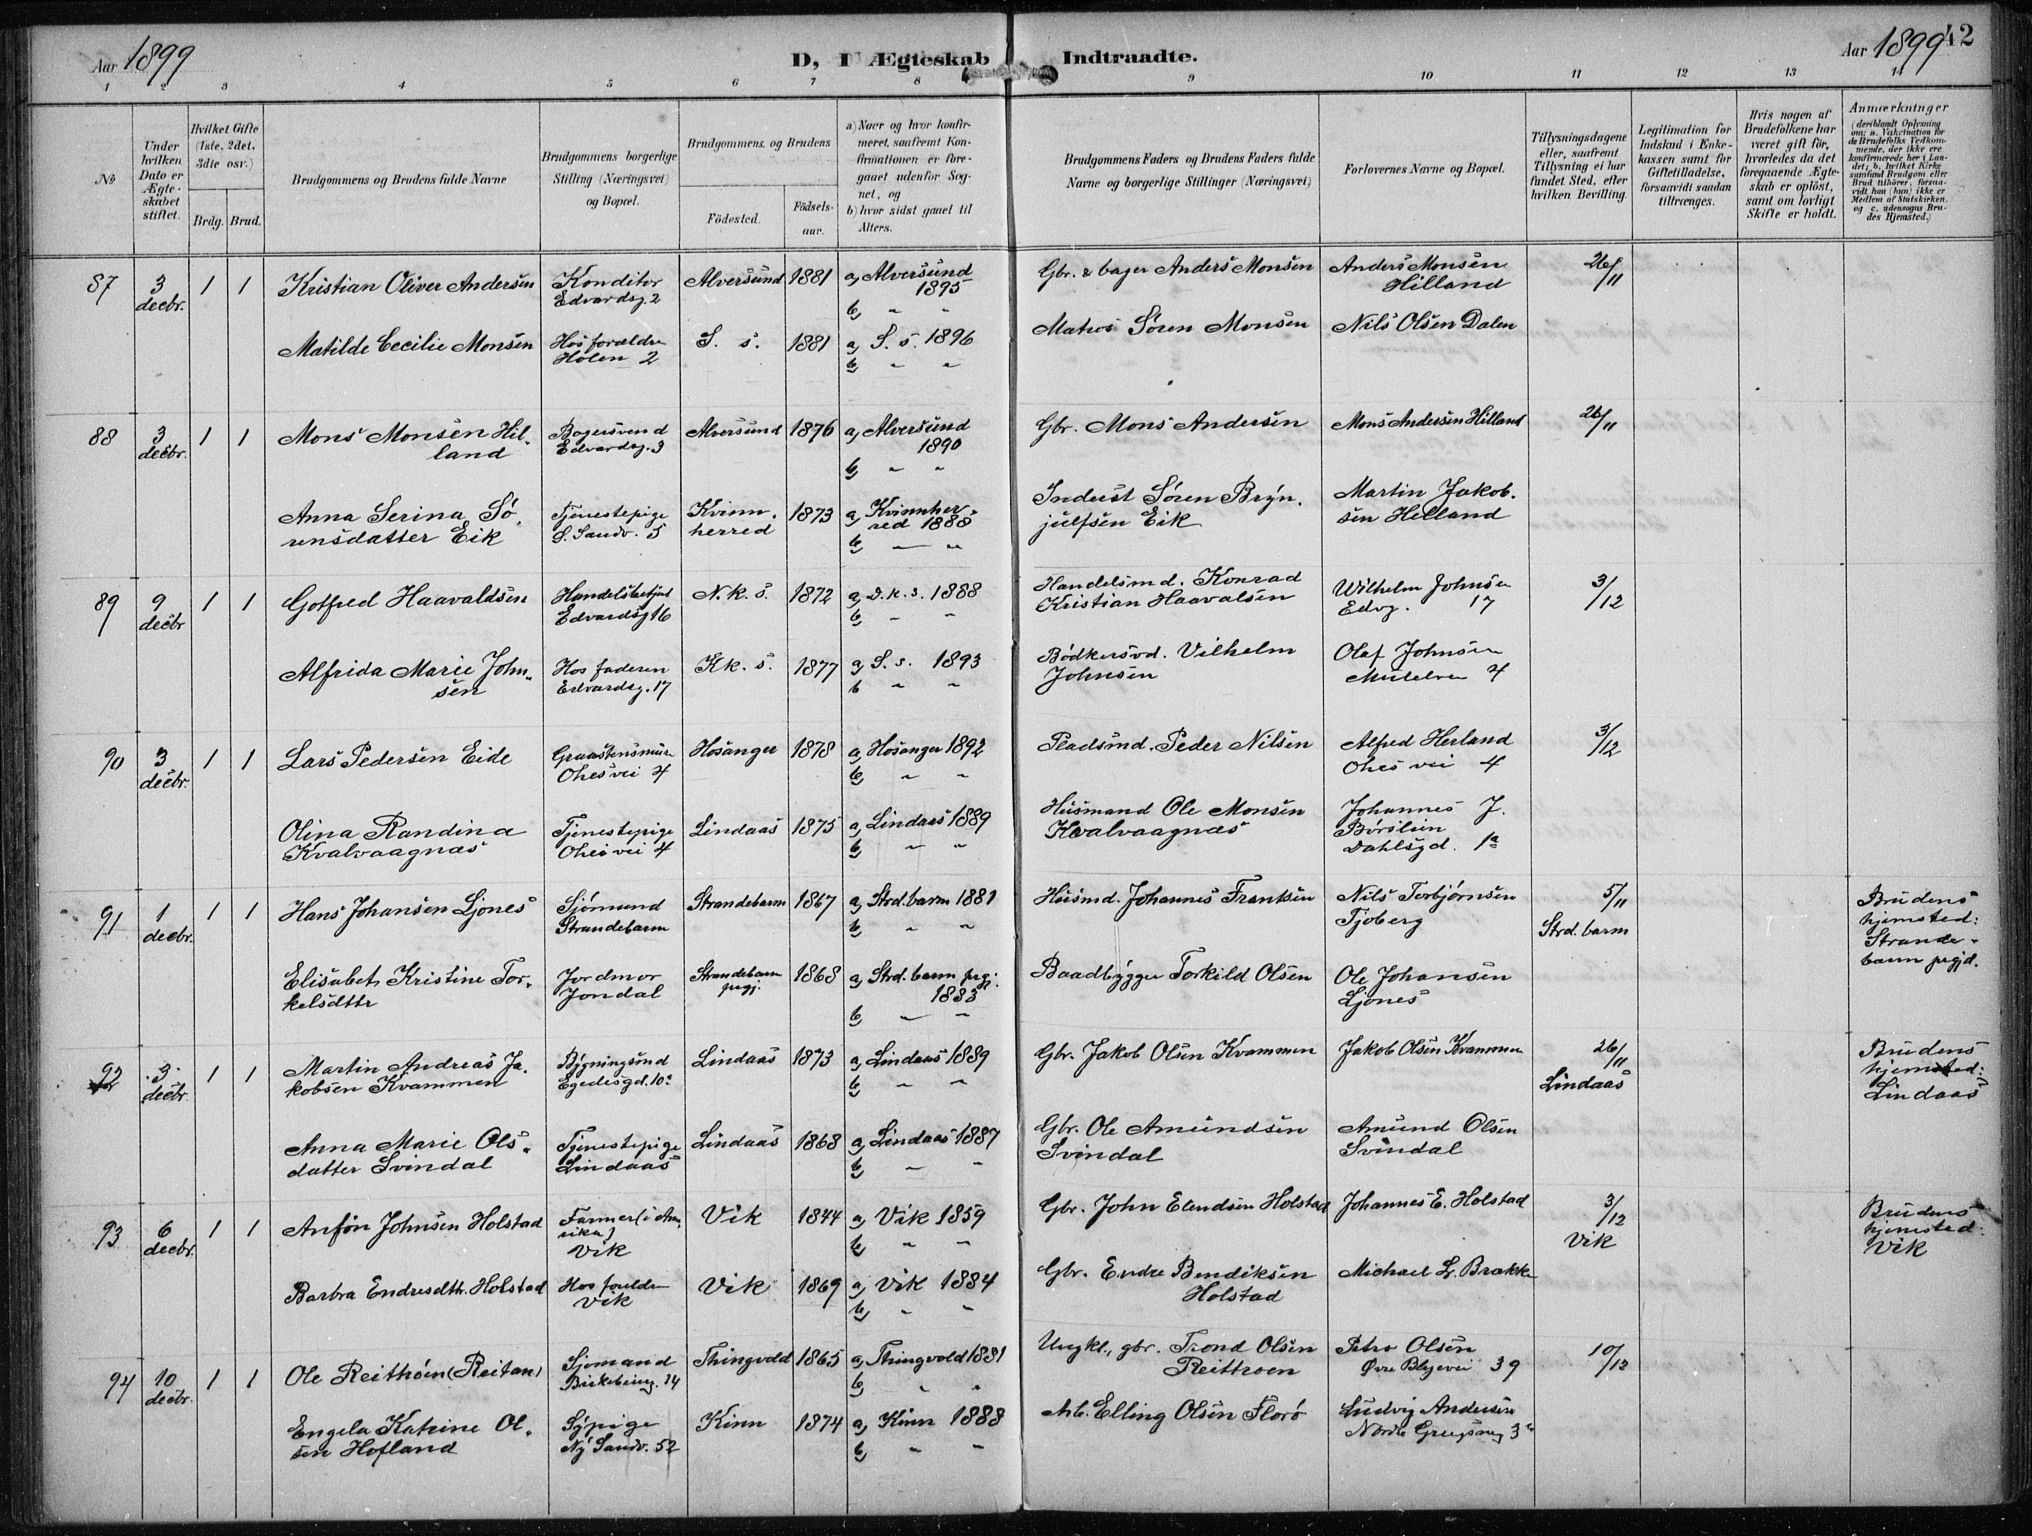 Aar 1899
D, I Ægteskab Indtraadte.
Aar 1899
42
1 2 3 4 5 6 7 8 9 10 11 12 13 14
No
Under hvilken Dato er Ægteskabet stiftet.
Hvilket Gifte (1ste, 2det, 3dte osv.)
Brdg. Brud.
Brudgommens og Brudens fulde Navne
Brudgommens borgerlige Stilling (Næringsvei) og Bopæl.
Brudgommens og Brudens
Födested.
Födsels-aar.
a) Naar og hvor konfirmeret, saafremt Konfirmationen er foregaaet udenfor Sognet, og
b) hvor sidst gaaet til Alters.
Brudgommens Faders og Brudens Faders fulde Navne og borgerlige Stillinger (Næringsvei)
Forlovernes Navne og Bopæl.
Tillysningsdagene eller, saafremt Tillysning ei har fundet Sted, efter hvilken Bevilling.
Legitimation for Indskud i Enkekassen samt for Giftetilladelse, forsaavidt saadan tiltrænges.
Hvis nogen af Brudefolkene har været gift för, hvorledes da det foregaaende Ægteskab er oplöst, samt om lovligt Skifte er holdt.
Anmærkninger
(deriblandt Oplysning om: a. Vakcination for de Brudefolks Vedkommende, der ikke ere konfirmerede her i Landet; b. hvilket Kirkesamfund Brudgom eller Brud tilhörer, forsaavidt han (hun) ikke er Medlem af Statskirken, og c. udensogns Brudes Hjemsted.)
87 3 decbr. 1 1 Kristian Oliver Andersen Konditor Edvardsg. 2 Alversund 1881 a) Alversund 1895 b) " " Gbr. & bager Anders Monsen Anders Monsen Hilland 26/11
Matilde Cecilie Monsen Hos forældre Holen 2 S. s. 1881 a) S. s. 1896 b) " " Matros Søren Monsen Nils Olsen Dalen
88 3 decbr. 1 1 Mons Monsen Hilland Bagersvend Edvardsg. 3 Alversund 1876 a) Alversund 1890 b) " " Gbr. Mons Andersen Mons Andersen Hilland 26/11
Anna Serina Sørensdatter Eik Tjenestepige S. Sandv. 5 Kvinnherred 1873 a) Kvinnherred 1888 b) " " Inderst Søren Brynjulfsen Eik Martin Jakobsen Helland
89 9 decbr 1 1 Gotfred Haavaldsen Handelsbetjent Edvardsg 16 N. k. s. 1872 a) D. k. s. 1888 b) " " Handelsmd. Konrad Kristian Haavalsen Wilhelm Johnsen Edvg. 17 3/12
Alfrida Marie Johnsen Hos faderen Edvardsg. 17 Kk. s. 1877 a) S. s. 1893 b " " Bødkersvd. Vilhelm Johnsen Olaf Johnsen 4
90 3 decbr. 1 1 Lars Pedersen Eide Graastensmurer Ohesvei 4 Hosanger 1878 a) Hosanger 1892 b) " " Pladsmd. Peder Nilsen Alfred Herland Ohes vei 4 3/12
Olina Randina Kvalvaagnæs Tjenestepige Ohes vei 4 Lindaas 1875 a) Lindaas 1889 b) " " Husmand Ole Monsen Kvalvaagnæs Johannes J. Børilsen Dahlsgd. 1a
91 1 decbr. 1 1 Hans Johansen Ljones Sjömand Strandebarm Strandebarm 1867 a) Strd. barm 1881 b) " " Husmd. Johannes Frantsen Nils Torbjørnsen Tjoberg 5/11 Strd. barm Brudens hjemsted: Strandebarm prgjd.
Elisabet Kristine Torkelsdttr Jordmor Jondal Strandebarm prgj. 1868 a) Strd. barm prgj: 1883 b) " " Baadbygger Torkild Olsen Ole Johansen Ljones
92 3 decbr. 1 1 Martin Andreas Jakobsen Kvammen Bygningssnd Egedesgd. 10a Lindaas 1873 a) Lindaas 1889 b) " " Gbr. Jakob Olsen Kvammen Jakob Olsen Kvammen 26/11 Lindaas Brudens hjemsted: Lindaas
Anna Marie Olsdatter Svindal Tjenestepige Lindaas Lindaas 1868 a) Lindaas 1887 b) " " Gbr. Ole Amundsen Svindal Amund Olsen Svindal
93 6 decbr. 1 1 Anfön Johnsen Holstad Farmer (i Amerika) Vik Vik 1844 a) Vik 1859 b) " " Gbr. John Elendsen Holstad Johannes E. Holstad 3/12 Vik Brudens hjemsted: Vik
Barbra Endresdth. Holstad Hos foreldre Vik Vik 1869 a) Vik 1884 b) " " Gbr. Endre Bendiksen Holstad Michael L. Brakke
94 10 decbr. 1 1 Ole Reithröen (Reitan) Sjømand Birkebeing. 14 Thingvold 1865 a) Thingvold 1881 b) " " Ungkl., gbr. Trond Olsen Reittroen Petro Olsen Øvre Blegevei 39 10/12
Engela Katrine Olsen Hofland Sypige Ny Sandv. 52 Kinn 1874 a) Kinn 1888 b) " " Arb. Elling Olsen Florö Ludvig Andersen